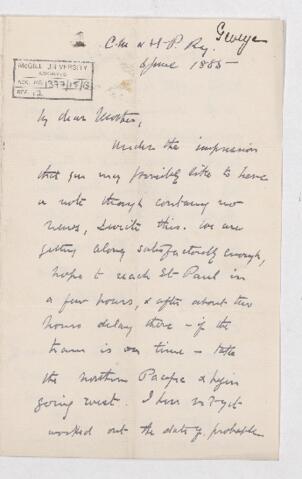 George
C.M & St. P. Ry.
McGILL UNIVERSITY
ARCHIVES
ACC. NO. 1377/15/3
REF. 12
June 1885
My dear Mother,
Under the impression
that you may possibly like to have
a note though containing no
news, I write this. We are
getting along satisfactorily enough,
hope to reach St Paul in
a few hours, & after about two
hours delay there - if the
train is on time - take
the Northern Pacific & begin
going west. I have not yet
worked out the date of probable